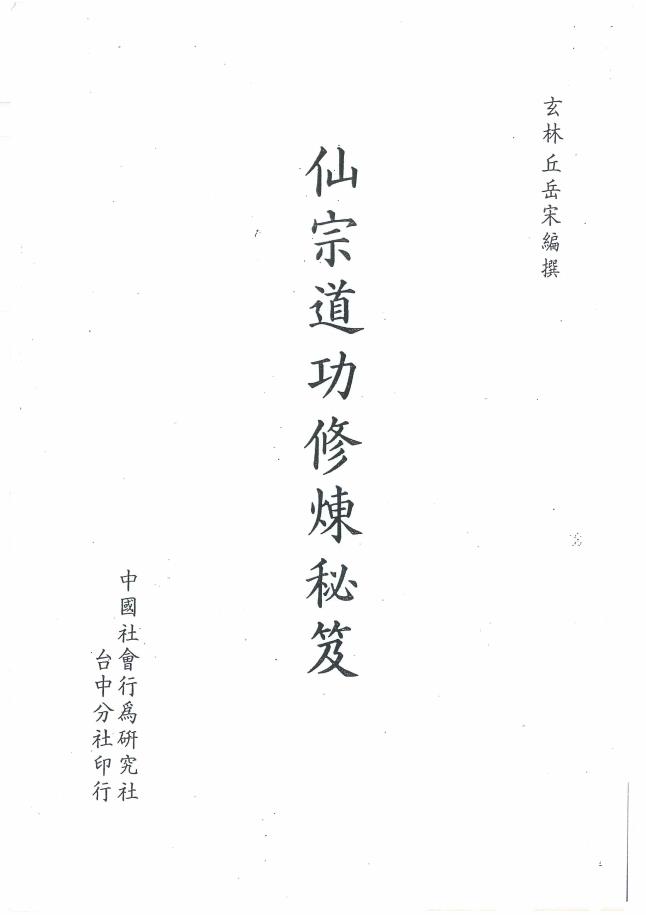 玄林丘岳宋編撰
仙宗道功修煉秘笈
中國社會行爲研究社
台中分社印行